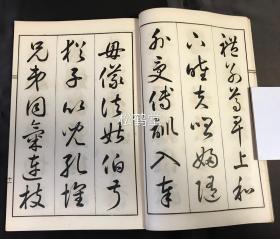 禮別尊卑上和
下睦夫唱婦隨
外受傅訓入奉
母儀諸姑伯叔
猶子比兒孔懷
兄弟同氣連枝